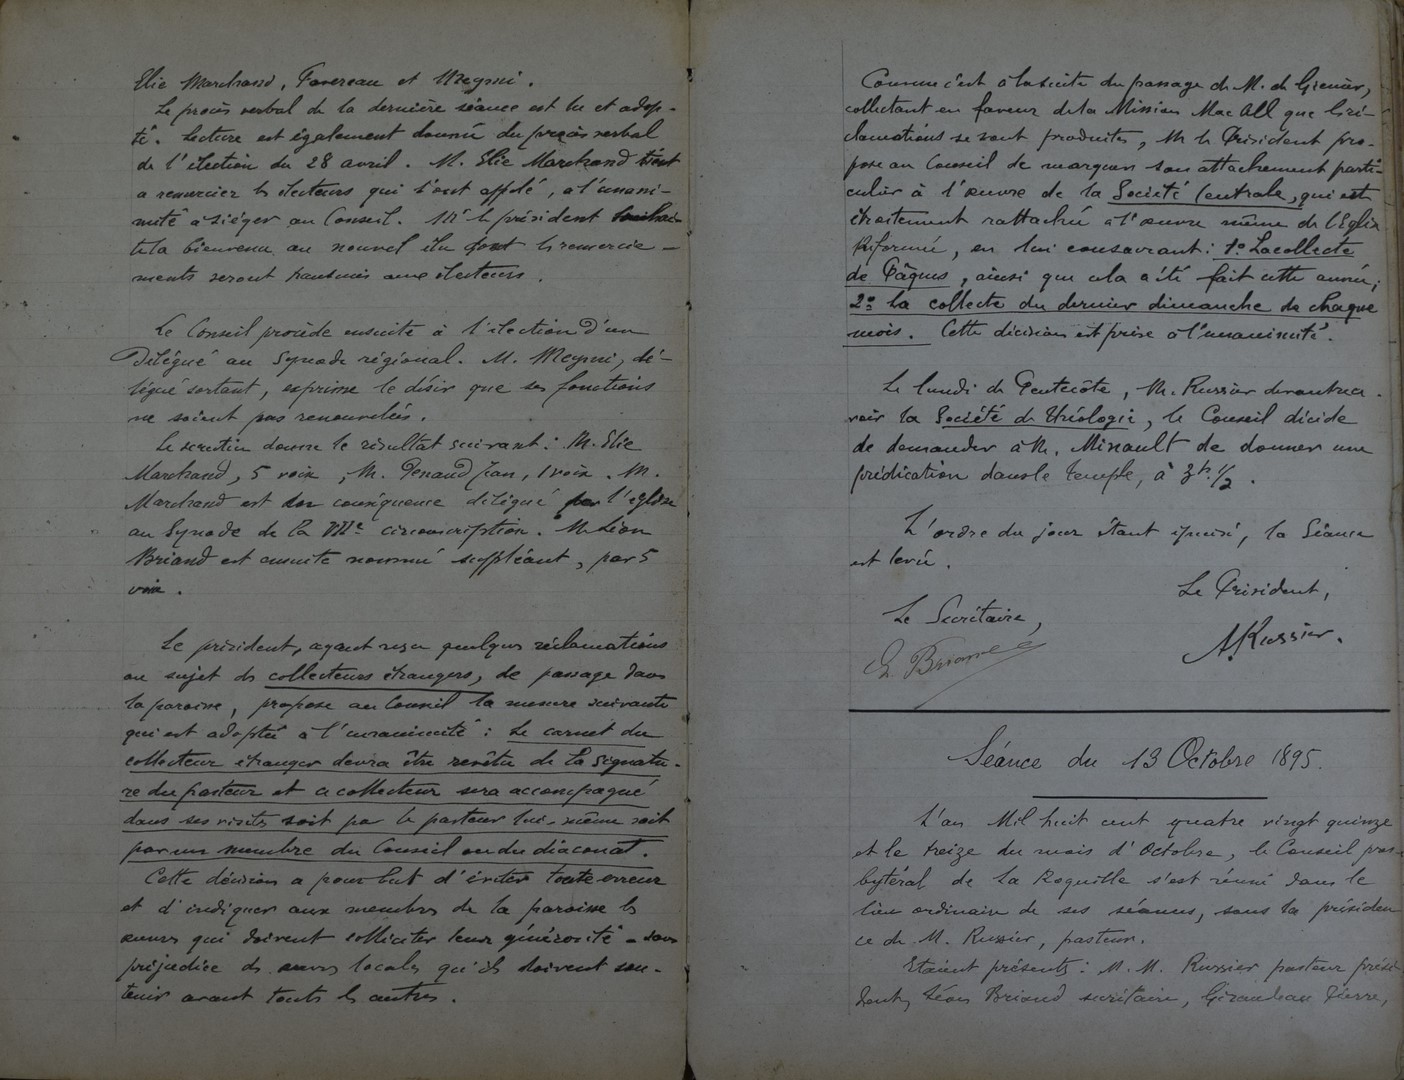 Elie Marchand, Favereau et Meyniu.
Le procès verbal de la dernière séance est lu et adop-
té. Lecture est également donnée du procès verbal
de l'élection du 28 avril. M. Elie Marchand tient
a remercier les électeurs qui l'ont appelé, a l'unani-
mité à siéger au Conseil. Mr le président souhai
te la bienvenue au nouvel élu les remercie-
ments seront transmis aux électeurs.
Le Conseil procède ensuite à l'élection d'un
Délégué au Synode régional. M. Meyniu, dé-
légué sortant, exprime le désir que ses fonctions
ne soient pas renouvelées.
Le scrutin donne le résultat suivant : M. Elie
Marchand, 5 voix, M. Penaud Jean, 1 voix. M.
Marchand est en conséquence délégué par l'église
au Synode de la circonscription. M. Léon
Briand est ensuite nommé suppléant, par 5
voix.
Le président, ayant reçu quelques réclamations
au sujet des collecteurs étrangers, de passage dans
la paroisse, propose au Conseil la mesure suivante
qui est adoptée à l'unanimité : Le carnet du
collecteur étranger devra être revêtu de la signatu-
re du pasteur et ce collecteur sera accompagné
dans ses visites soit par le pasteur lui-même soit
par un membre du Conseil ou du diaconat.
Cette décision a pour but d'éviter toute erreur
et d'indiquer aux membres de la paroisse les
œuvres qui doivent solliciter leur générosité - sans
préjudice des œuvres locales qu'ils doivent sou-
tenir avant toutes les autres.
Comme c'est à la suite du passage de M. de Grenier,
collectant en faveur de la Mission Mac All que les ré-
clamations se sont produites, M. le Président pro-
pose au Conseil de marquer son attachement parti-
culier à l'œuvre de la Société Centrale, qui est
étroitement rattachée à l'œuvre même de l'Eglise
Réformée, en lui consacrant : 1º La collecte
de Pâques, ainsi que cela a été fait cette année,
2º la collecte du dernier dimanche de chaque
mois. Cette décision est prise à l'unanimité.
Le lundi de Pentecôte, M. Russier devant rece-
voir la Société de Théologie, le Conseil décide
de demander à M. Minault de donner une
prédication dans le temple, à 3h 1/2.
L'ordre du jour étant épuisé, la Séance
est levée.
Le Président,
Le Secrétaire,
A. Russier.
L. Briand
Séance du 13 Octobre 1895.
L'an Mil huit cent quatre vingt quinze
et le treize du mois d'Octobre, le Conseil pres-
bytéral de La Roquille s'est réuni dans le
lieu ordinaire de ses séances, sous la présiden
ce de M. Russier, pasteur.
Etaient présents : M. M. Russier pasteur prési
dent, Léon Briand secrétaire, Girandeau Pierre,